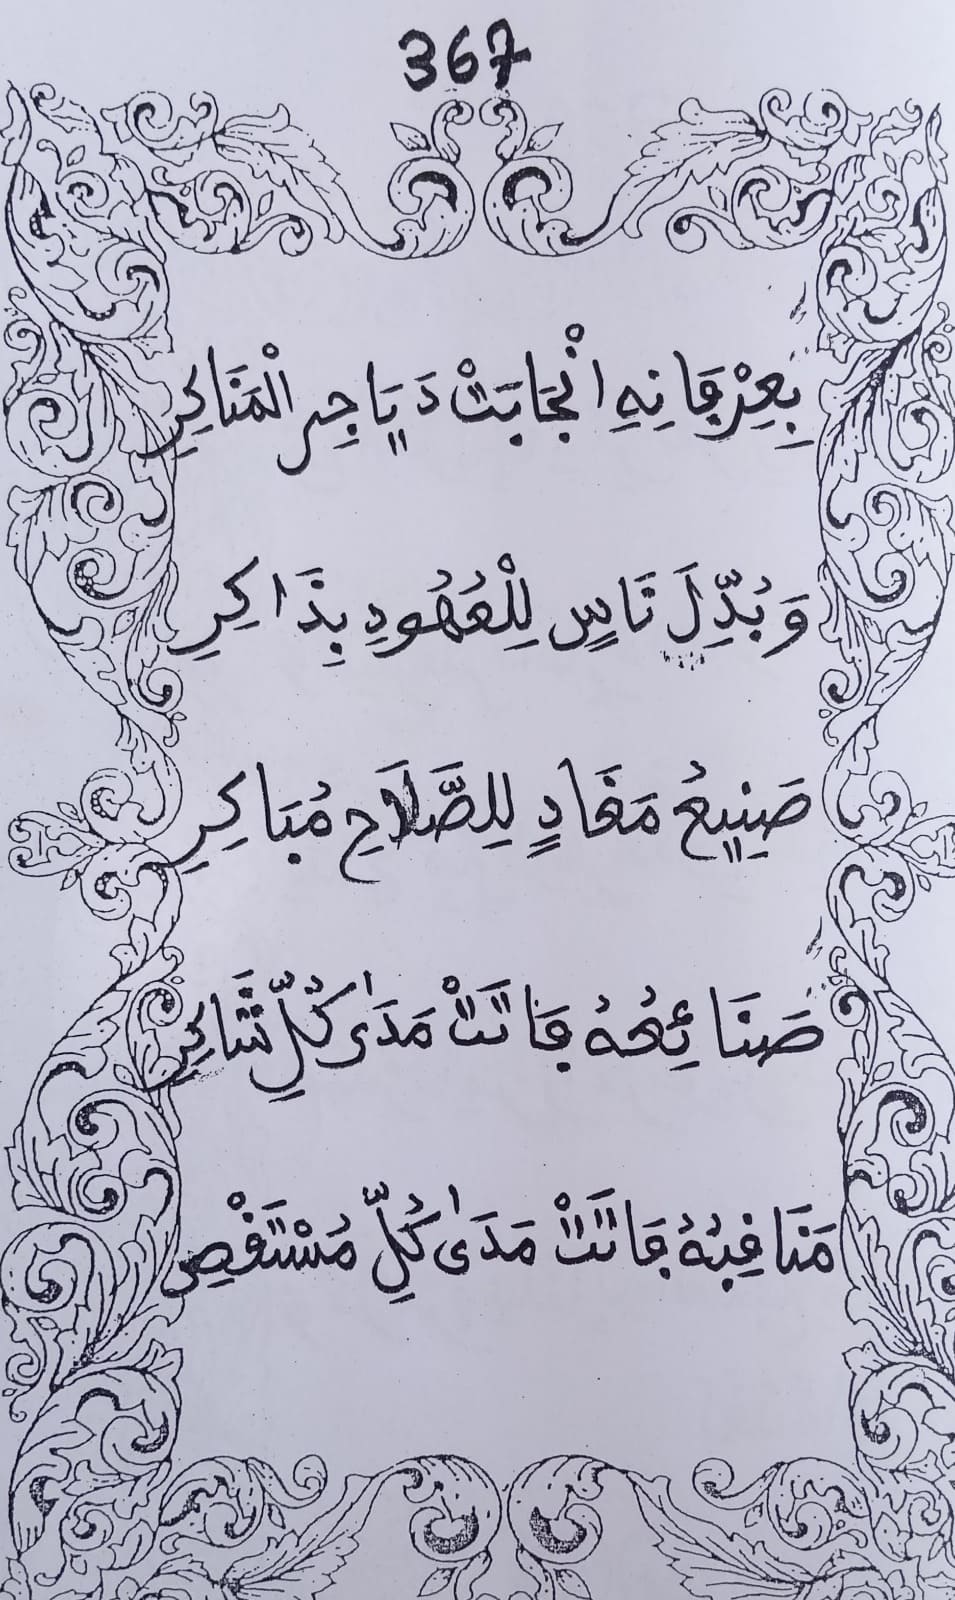 367
بِعِرْفَانِهِ انْجَابَتْ دَيَاجِر الْمَنَاكِرِ
وَبُدِّلَ نَاسٍ لِلْعُهُودِ بِذَاكِرِ
صَنِيعُ مَفَادٍ لِلصَّلَاحِ مُبَاكِرِ
صَنَائِحُهُ فَاتَتْ مَدَى كُلِّ شَاكِرِ
مَنَاقِبُهُ فَاتَتْ مَدَى كُلِّ مُسْتَقْصِ